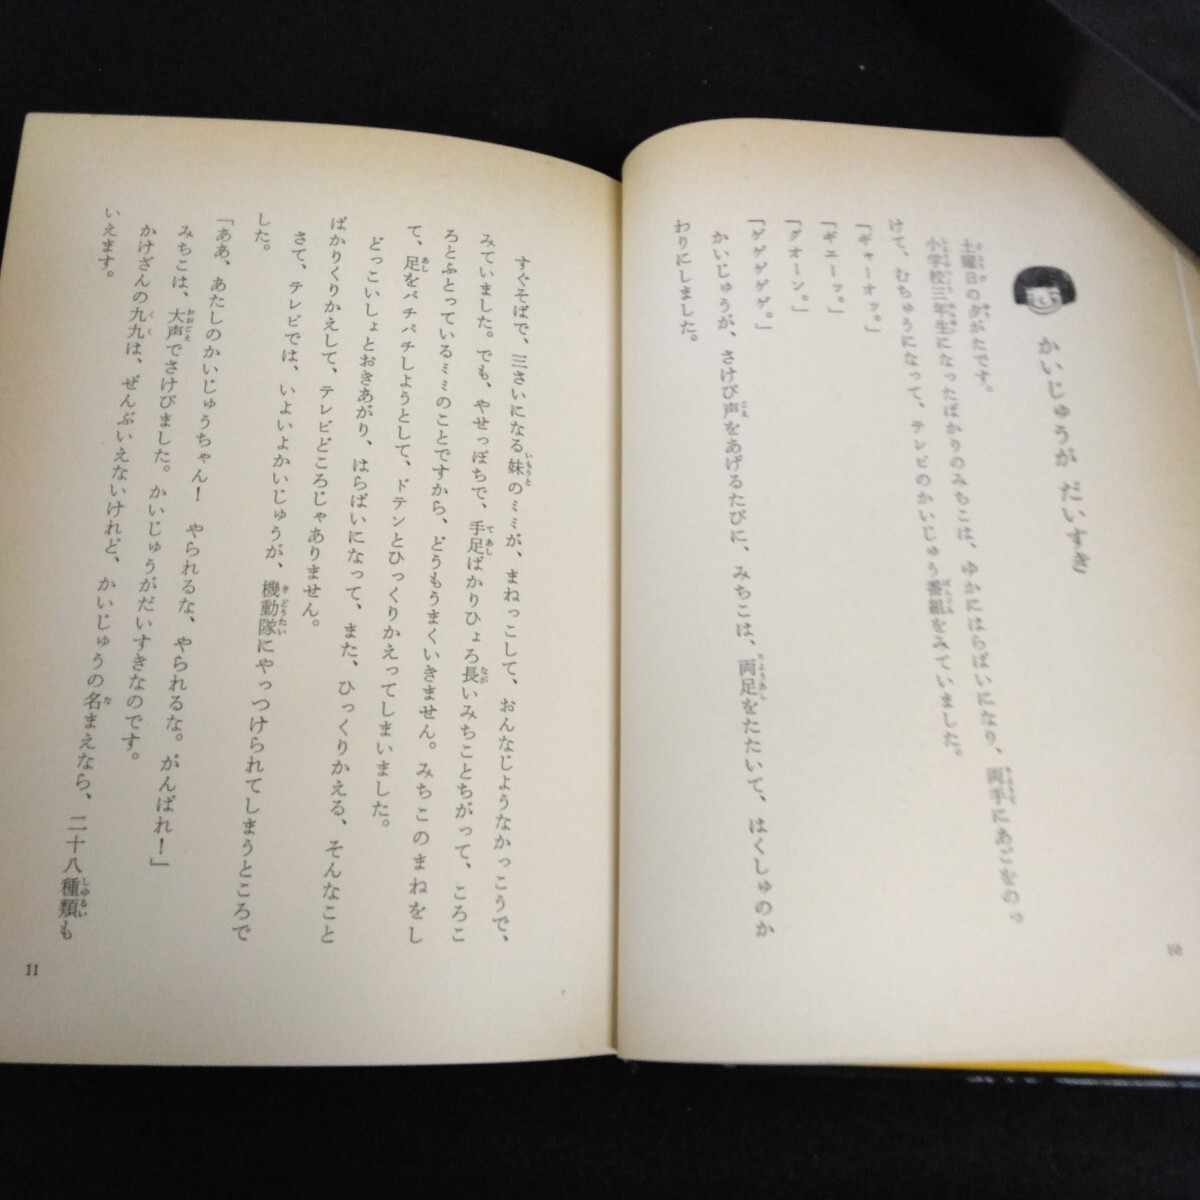 かいじゅうが だいすき
土曜日の夕がたです。
小学校三年生になったばかりのみちこは、ゆかにはらばいになり、両手にあごをのっ
けて、むちゅうになって、テレビのかいじゅう番組をみていました。
「ギャーオッ。」
「ギエーッ。」
「クオーン。」
「ゲゲゲゲ。」
かいじゅうが、さけび声をあげるたびに、みちこは、両足をたたいて、はくしゅのか
わりにしました。
10
すぐそばで、三さいになる妹のミミが、まねっこして、おんなじようなかっこうで、
みていました。でも、やせっぽちで、手足ばかりひょろ長いみちことちがって、ころこ
ろとふとっているミミのことですから、どうもうまくいきません。みちこのまねをし
て、足をパチパチしようとして、ドテンとひっくりかえってしまいました。
どっこいしょとおきあがり、はらばいになって、また、ひっくりかえる、そんなこと
ばかりくりかえして、テレビどころじゃありません。
さて、テレビでは、いよいよかいじゅうが、機動隊にやっつけられてしまうところで
した。
「ああ、あたしのかいじゅうちゃん！ やられるな、やられるな。がんばれ！」
みちこは、大声でさけびました。かいじゅうがだいすきなのです。
かけざんの九九は、ぜんぶいえないけれど、かいじゅうの名まえなら、二十八種類も
いえます。
11